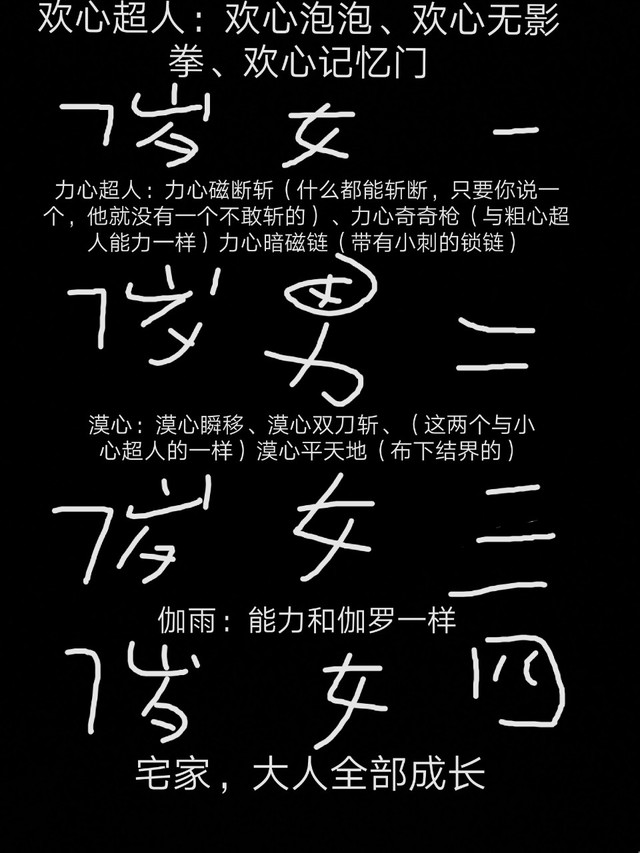 欢心超人：欢心泡泡、欢心无影
拳、欢心记忆门
7岁 女 一
力心超人：力心磁断斩（什么都能斩断，只要你说一
个，他就没有一个不敢斩的）、力心奇奇枪（与粗心超
人能力一样）力心暗磁链（带有小刺的锁链）
7岁 男 二
漠心：漠心瞬移、漠心双刀斩、（这两个与小
心超人的一样）漠心平天地（布下结界的）
7岁 女 三
伽雨：能力和伽罗一样
7岁 女 四
宅家，大人全部成长